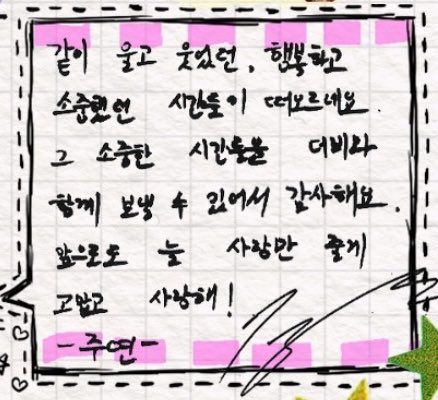 같이 울고 웃었던, 행복하고
소중했던 시간들이 떠오르네요.
그 소중한 시간들을 더비와
함께 보낼 수 있어서 감사해요.
앞으로도 늘 사랑만 줄게
고맙고 사랑해!
-주연-